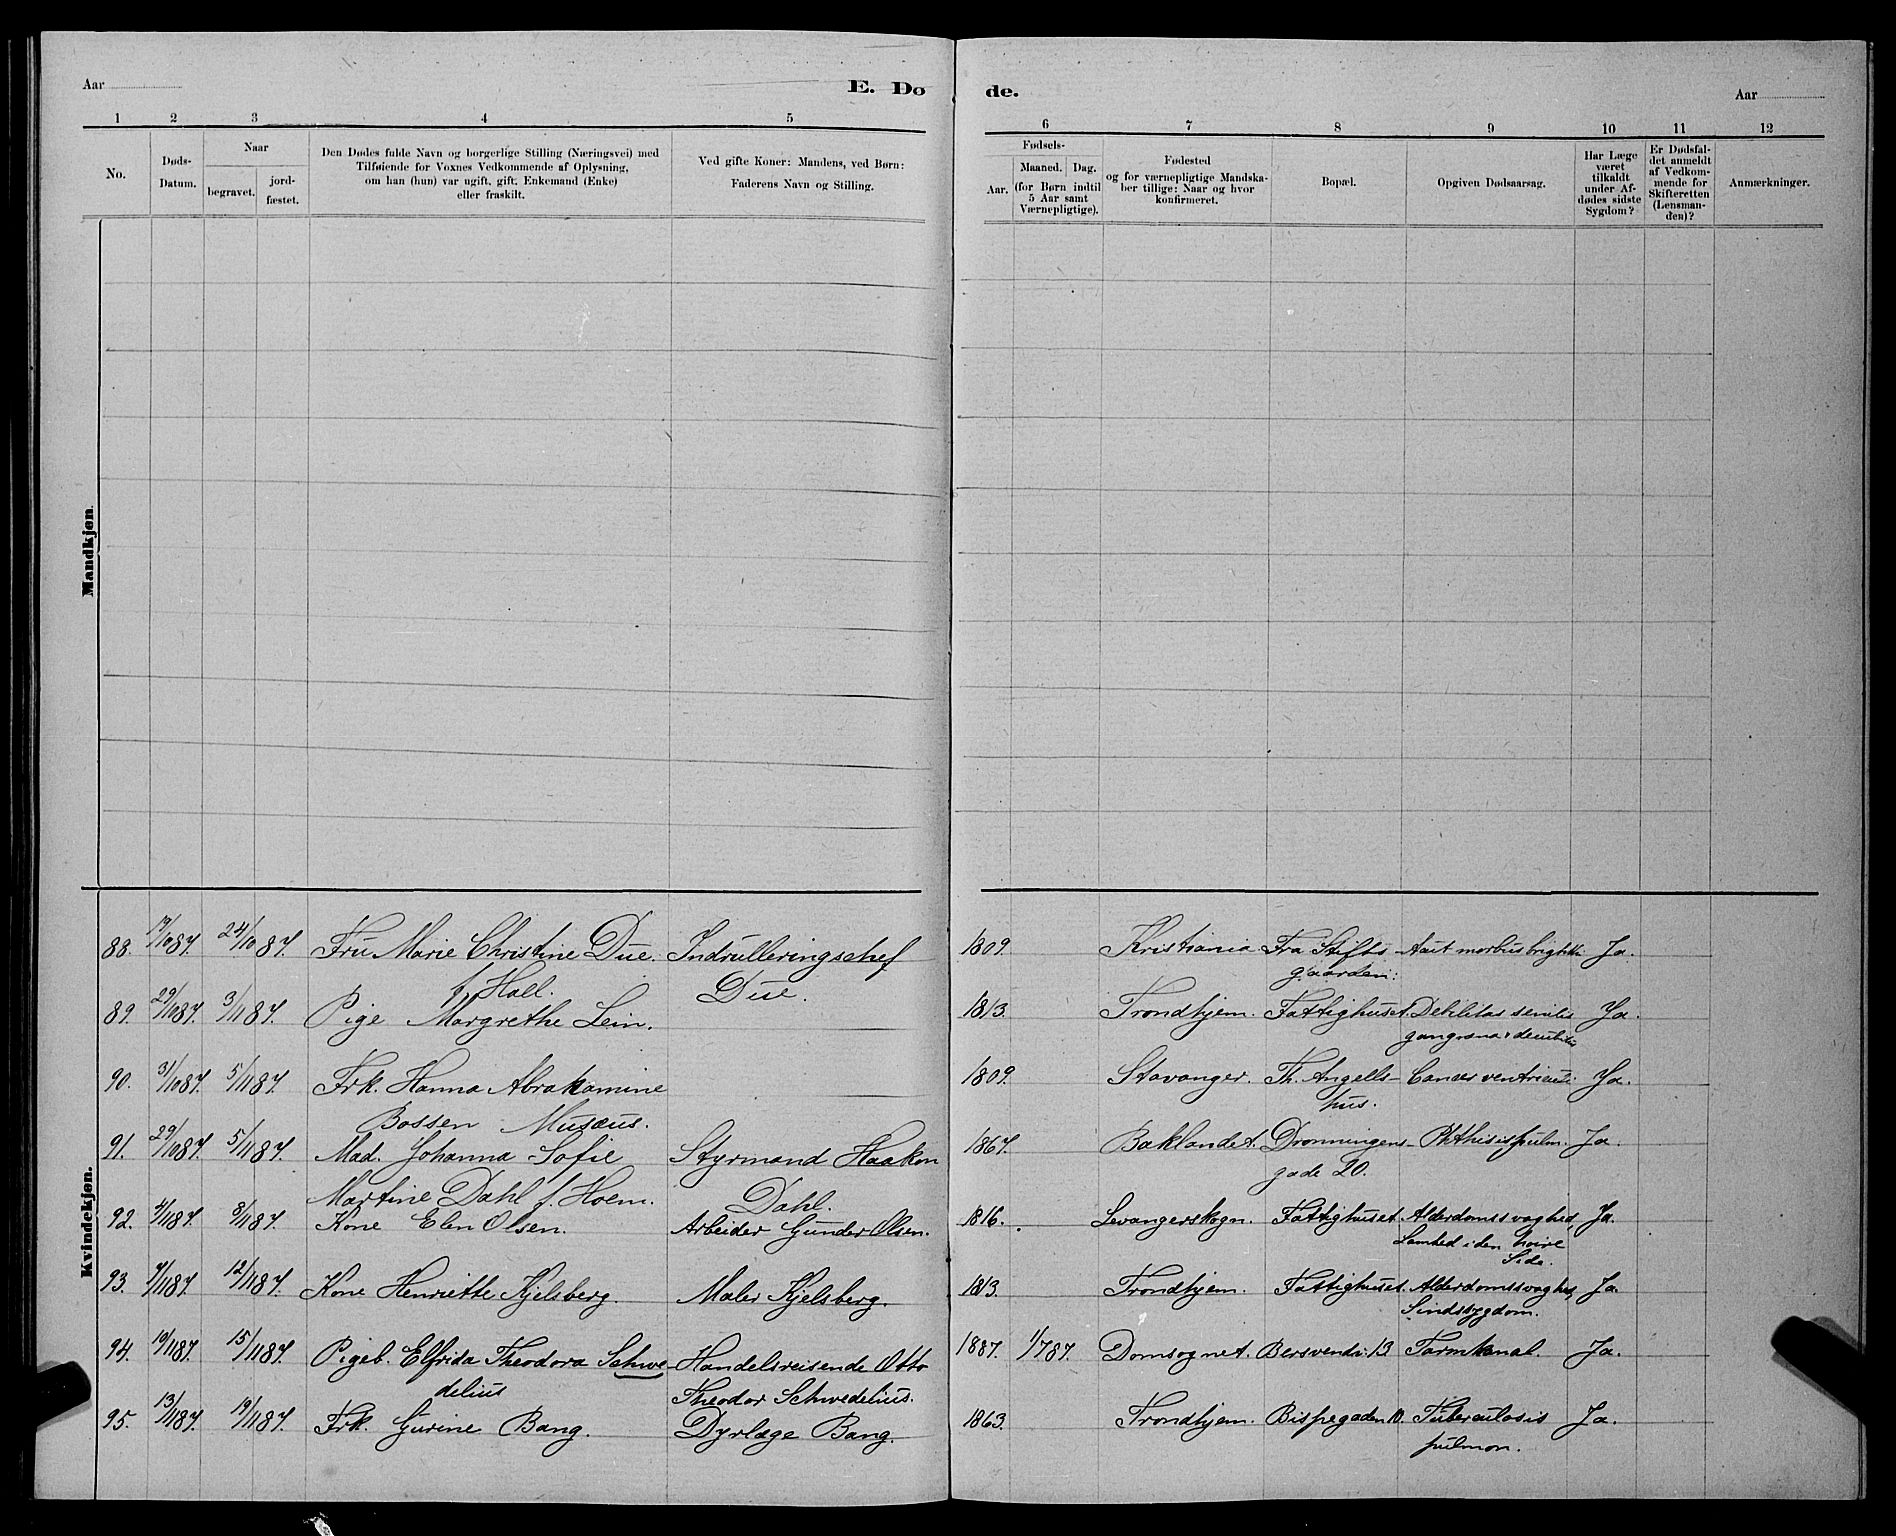 Aar
E. Dø
de.
Aar
1 2 3 4 5
6 7 8 9 10 11 12
No.
Døds-
Datum.
Naar
begravet.
jord-
fæstet.
Den Dødes fulde Navn og borgerlige Stilling (Næringsvei) med
Tilføiende for Voxnes Vedkommende af Oplysning,
om han (hun) var ugift, gift, Enkemand (Enke)
eller fraskilt.
Ved gifte Koner: Mandens, ved Børn:
Faderens Navn og Stilling.
Fødsels-
Aar.
Maaned. Dag.
(for Børn indtil
5 Aar samt
Værnepligtige).
Fødested
og for værnepligtige Mandska-
ber tillige: Naar og hvor
konfirmeret.
Bopæl.
Opgiven Dødsaarsag.
Har Læge
været
tilkaldt
under Af-
dødes sidste
Sygdom?
Er Dødsfal-
det anmeldt
af Vedkom-
mende for
Skifteretten
(Lensman-
den)?
Anmærkninger.
Mandkjøn.
Kvindekjøn.
88. 19/10 87. 24/10 87. Fru Marie Christine Due. Indrulleringschef 1809. Kristiania Fra Stifts- morbus brightii Ja.
f. Holl. Due. gaarden:
89. 29/10 87. 3/11 87. Pige Margrethe Lein. 1813. Trondhjem. Fattighuset. Debilitas senilis Ja.
gangræna
90. 31/10 87. 5/11 87. Frk. Hanna Abrahamine 1809. Stavanger. Th. Angells- Cancer ventriculi Ja.
Bossen Musæus. hus.
91. 29/10 87. 5/11 87. Mad. Johanna Sofie Styrmand Haakon 1867. Baklandet. Dronningens Phthisis pulm. Ja.
Martine Dahl f. Hoem. Dahl. gade 20.
92. 4/11 87. 8/11 87. Kone Elen Olsen. Arbeider Gunder Olsen. 1816. Levangerskogn. Fattighuset. Alderdomssvaghed, Ja.
Lamhed i den høire
Side.
93. 7/11 87. 12/11 87. Kone Henriette Kjelsberg. Maler Kjelsberg. 1813. Trondhjem. Fattighuset. Alderdomssvaghed, Ja.
Sindssygdom.
94. 10/11 87. 15/11 87. Pigeb. Elfrida Theodora Schwe Handelsreisende Otto 1887. 1/7 87. Domsognet. Bersvendv. 13 Tarmkanal. Ja.
delius Theodor Schwedelius.
95. 13/11 87. 19/11 87. Frk. Gurine Bang. Dyrlæge Bang. 1863. Trondhjem. Bispegaden 10. Tuberculosis Ja.
pulmon.